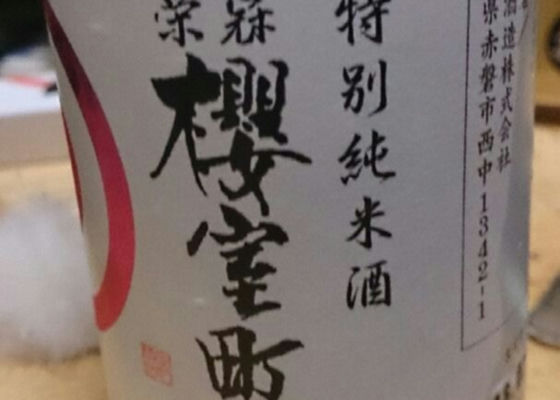 酒造株式会社
県赤磐市西中1342-1
特別純米酒
櫻室町